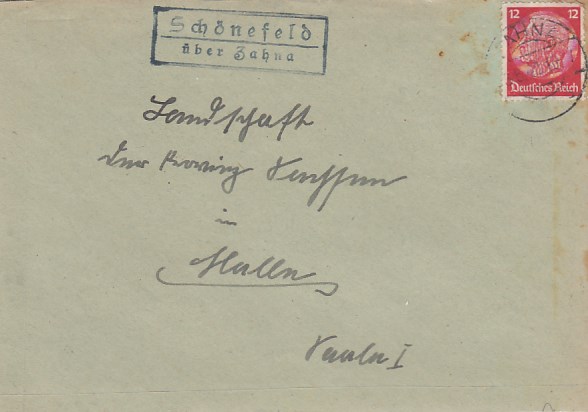 Schönefeld
über Zahna
12 12
Deutsches Reich
AHN
Landschaft
der Provinz Sachsen
in
Halle
Saale I